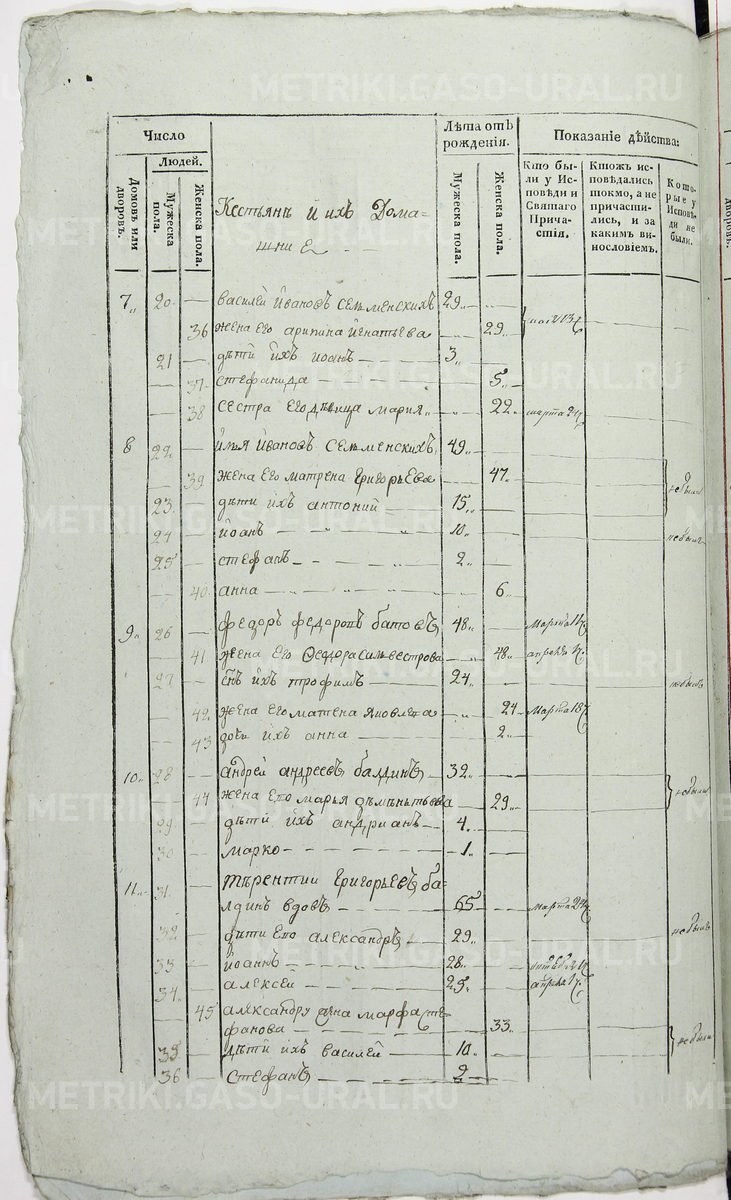 METRIKI.GASO-URAL.RU
Число
Людей.
Домовъ или дворовъ.
Мужеска пола.
Женска пола.
Лѣта отъ рожденія.
Мужеска пола.
Женска пола.
Показаніе дѣйства:
Кто бы-
ли у Ис-
повѣди и
Святаго
Прича-
стія.
Ктожъ ис-
повѣдались
токмо, а не
причасти-
лись, и за
какимъ ви-
нословіемъ.
Кото-
рые у
Исповѣ-
ди не
были.
Кестьянъ и ихъ Дома-
шни Е
7 20 василей Ивановъ Семменскихъ 29
36 жена его арипина Игнатьева 29
21 дѣти ихъ иоанъ 3
37 стефанида 5
38 сестра его дѣвица мария 22 марта
8 22 илья Ивановъ Семменскихъ 49
39 жена его матрена Григорьева 47 небыли
23 дѣти ихъ антоний 15
24 иоанъ 10 небылъ
25 стефанъ 2
40 анна 6
9 26 федоръ федоровъ батовъ 48 Марта
41 жена его Феодора Сильвестрова 48 апреля
27 снъ ихъ трофимъ 24 небылъ
42 жена его матена Яковлева 24 Марта 18
43 дочь ихъ анна 2
10 28 андрей андреевъ балдинъ 32
44 жена его марья дементьева 29 небыли
29 дѣти ихъ андрианъ 4
30 марко 1
11 31 терентии григорьевъ ба-
лдинъ вдовъ 65 марта
32 дити его александръ 29 небылъ
33 иоаннъ 28
34 алексей 25 апреля
45 александру жена марфа
фанова 33
35 дѣти ихъ василей 10 небыли
36 стефанъ 2